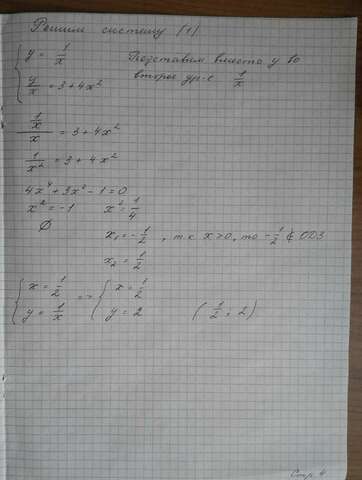 Решим систему (1)
{ y = 1/x
{ y/x = 3 + 4x²
Подставим вместо y во
второе ур-е 1/x
(1/x)/x = 3 + 4x²
1/x² = 3 + 4x²
4x⁴ + 3x² - 1 = 0
x² = -1 x² = 1/4
∅
x₁ = -1/2 , т к x > 0, то -1/2 ∉ ОДЗ
x₂ = 1/2
{ x = 1/2 => { x = 1/2
{ y = 1/x { y = 2 (1/2; 2)
Стр. 4